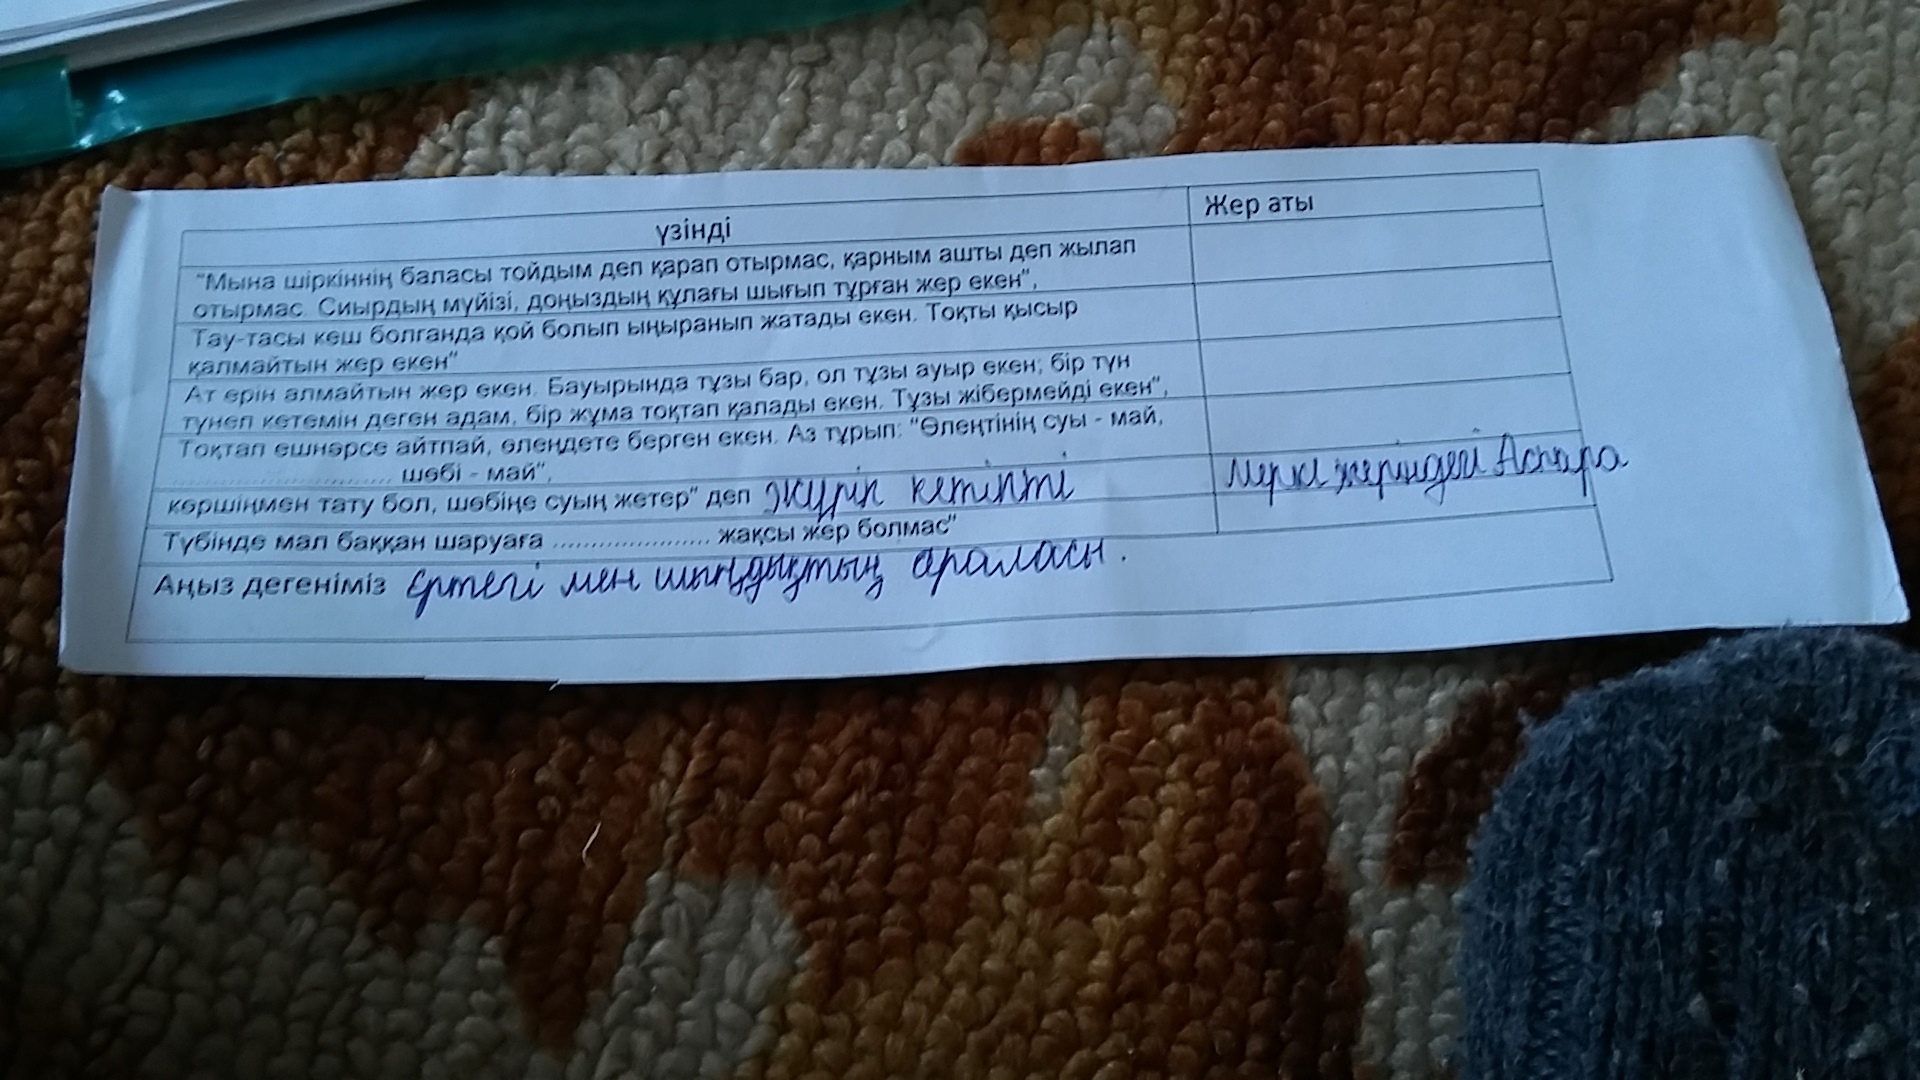 үзінді
Жер аты
"Мына шіркіннің баласы тойдым деп қарап отырмас, қарным ашты деп жылап
отырмас. Сиырдың мүйізі, доңыздың құлағы шығып тұрған жер екен",
Тау-тасы кеш болғанда қой болып ыңыранып жатады екен. Тоқты қысыр
қалмайтын жер екен"
Ат ерін алмайтын жер екен. Бауырында тұзы бар, ол тұзы ауыр екен; бір түн
түнеп кетемін деген адам, бір жұма тоқтап қалады екен. Тұзы жібермейді екен",
Тоқтап ешнәрсе айтпай, өлеңдете берген екен. Аз тұрып: "Өлеңтінің суы - май,
............................ шөбі - май",
көршіңмен тату бол, шөбіңе суың жетер" деп жүріп кетіпті
Меркі жеріндегі Аспара
Түбінде мал баққан шаруаға ..................... жақсы жер болмас"
Аңыз дегеніміз ертегі мен шындықтың араласы.